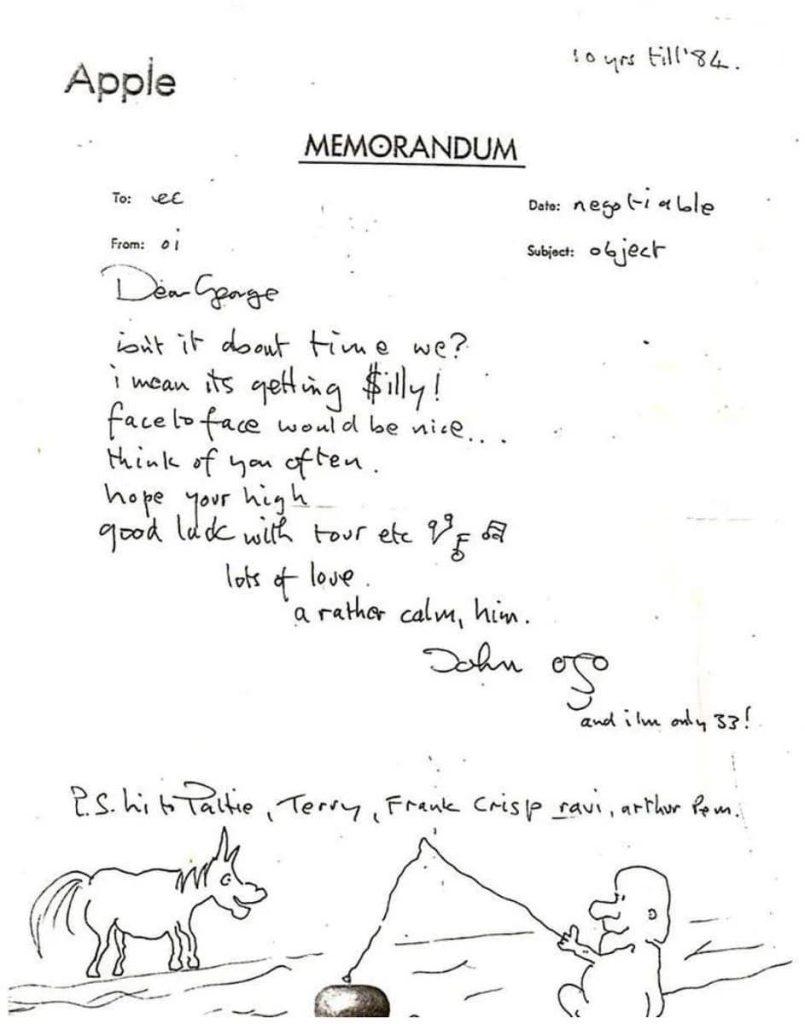 10 yrs till '84.
Apple
MEMORANDUM
To: ee
Date: negotiable
From: oi
Subject: object
Dear George
isn't it about time we?
i mean its getting $illy!
face to face would be nice...
think of you often.
hope your high
good luck with tour etc
lots of love.
a rather calm, him.
John
and i'm only 33!
P.S. hi to Pattie, Terry, Frank Crisp ravi, arthur